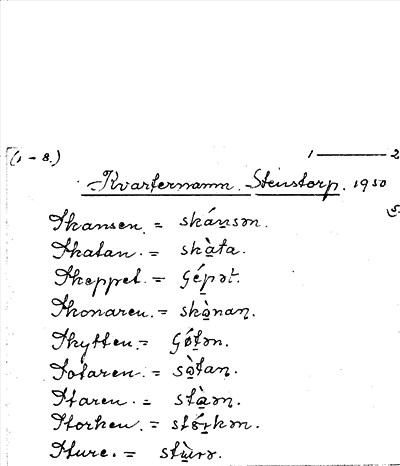 (1 - 8.) 1 — 2
Kvarternamn. Stenstorp. 1950
5.
Skansen. = skánsən.
Skatan. = skàta.
Skeppet. = Gépət.
Skonaren. = skònaṇ.
Skytten. = Gǿtən.
Sotaren. = sòtaṇ.
Staren. = stàəṇ.
Storken. = stórkən.
Sture. = stùrə.